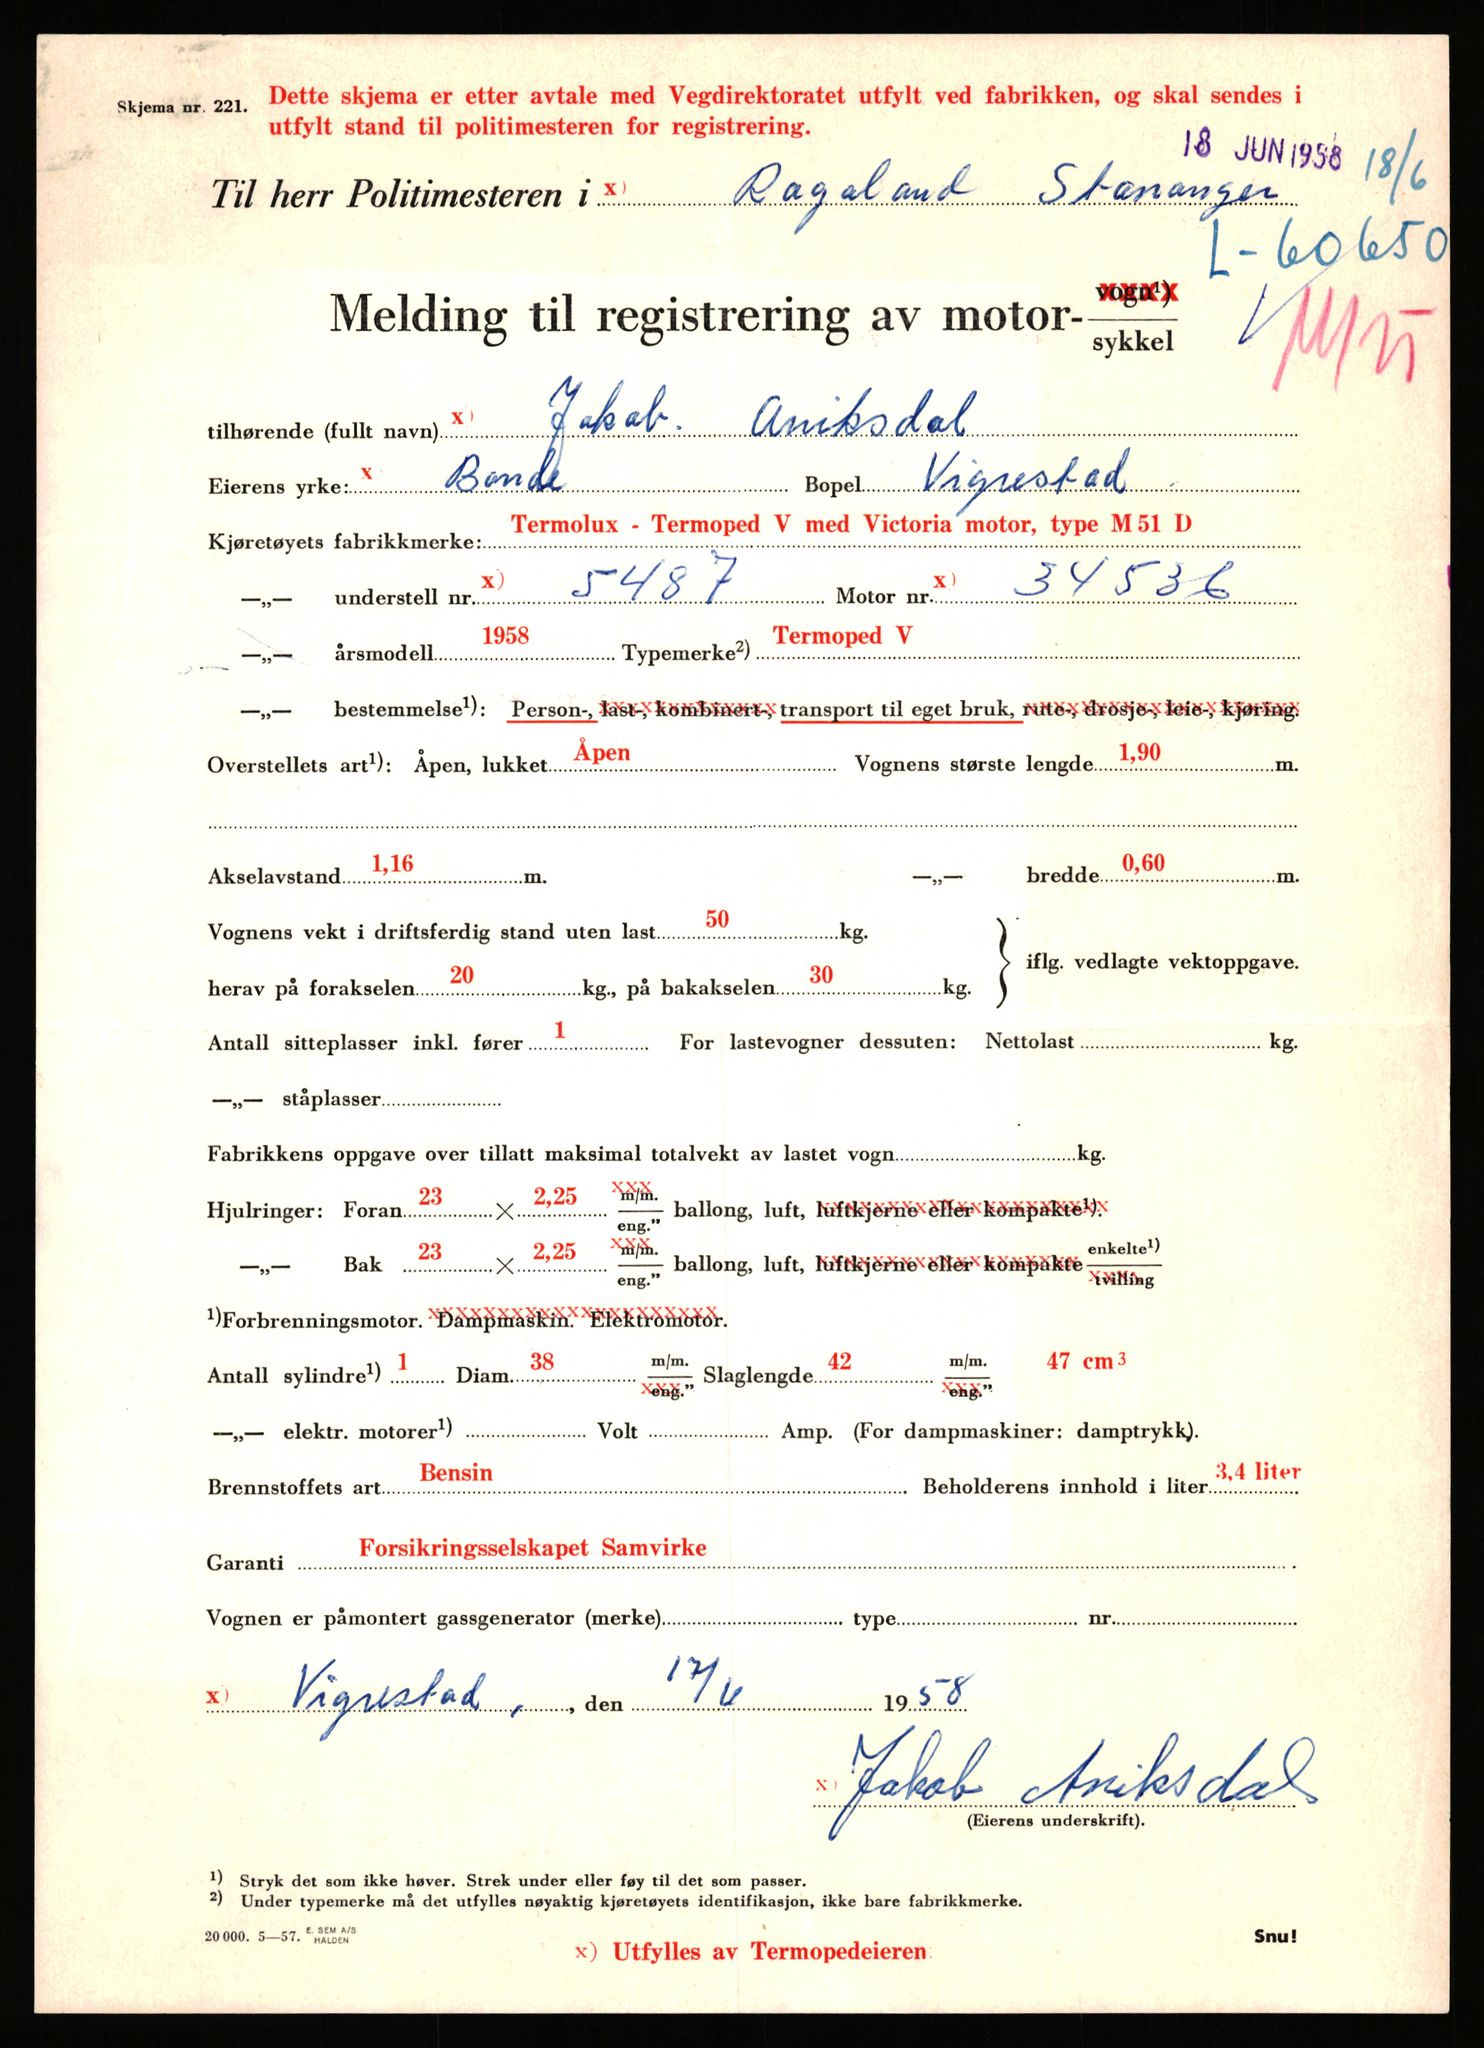 Skjema nr. 221. Dette skjema er etter avtale med Vegdirektoratet utfylt ved fabrikken, og skal sendes i
utfylt stand til politimesteren for registrering.
18 JUN 1958 18/6
Til herr Politimesteren i x) Rogaland Stavanger
L-60650
Melding til registrering av motor- vogn¹)
sykkel
tilhørende (fullt navn) x) Jakob. Aniksdal
Eierens yrke: x Bonde Bopel Vigrestad
Kjøretøyets fabrikkmerke: Termolux - Termoped V med Victoria motor, type M 51 D
—„— understell nr. x) 5487 Motor nr. x) 34536
—„— årsmodell 1958 Typemerke²) Termoped V
—„— bestemmelse¹): Person-, last-, kombinert-, transport til eget bruk, rute-, drosje-, leie-, kjøring.
Overstellets art¹): Åpen, lukket Åpen Vognens største lengde 1,90 m.
Akselavstand 1,16 m. —„— bredde 0,60 m.
Vognens vekt i driftsferdig stand uten last 50 kg.
iflg. vedlagte vektoppgave.
herav på forakselen 20 kg., på bakakselen 30 kg.
Antall sitteplasser inkl. fører 1 For lastevogner dessuten: Nettolast kg.
—„— ståplasser
Fabrikkens oppgave over tillatt maksimal totalvekt av lastet vogn kg.
Hjulringer: Foran 23 × 2,25 m/m. eng." ballong, luft, luftkjerne eller kompakte¹).
—„— Bak 23 × 2,25 m/m. eng." ballong, luft, luftkjerne eller kompakte enkelte¹) tvilling
¹)Forbrenningsmotor. Dampmaskin. Elektromotor.
Antall sylindre¹) 1 Diam. 38 m/m. eng." Slaglengde 42 m/m. eng." 47 cm³
—„— elektr. motorer¹) Volt Amp. (For dampmaskiner: damptrykk).
Brennstoffets art Bensin Beholderens innhold i liter 3,4 liter
Garanti Forsikringsselskapet Samvirke
Vognen er påmontert gassgenerator (merke) type nr.
x) Vigrestad, , den 17/6 1958
x) Jakob Aniksdal
(Eierens underskrift).
¹) Stryk det som ikke høver. Strek under eller føy til det som passer.
²) Under typemerke må det utfylles nøyaktig kjøretøyets identifikasjon, ikke bare fabrikkmerke.
20 000. 5—57. E. SEM A/S HALDEN
Snu!
x) Utfylles av Termopedeieren